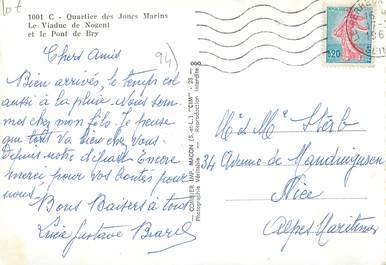 lot
1001 C - Quartier des Jones Marins
Le Viaduc de Nogent
et le Pont de Bry
94)
Chers Amis
Bien arrivés, le temps est
aussi à la pluie. Nous som
mes chez mon fils. Je pense
que tout va bien chez vous.
Depuis notre départ. Encore
merci pour vos bontés pour
nous.
Bons Baisers à tous
Lucie Gustave
COMBIER IMP. MACON (S-et-L.) "CIM"
Photographie Véritable - Reproduction Interdite
0,20
Mr et Me
34 Avenue de
Nice
Alpes Maritimes